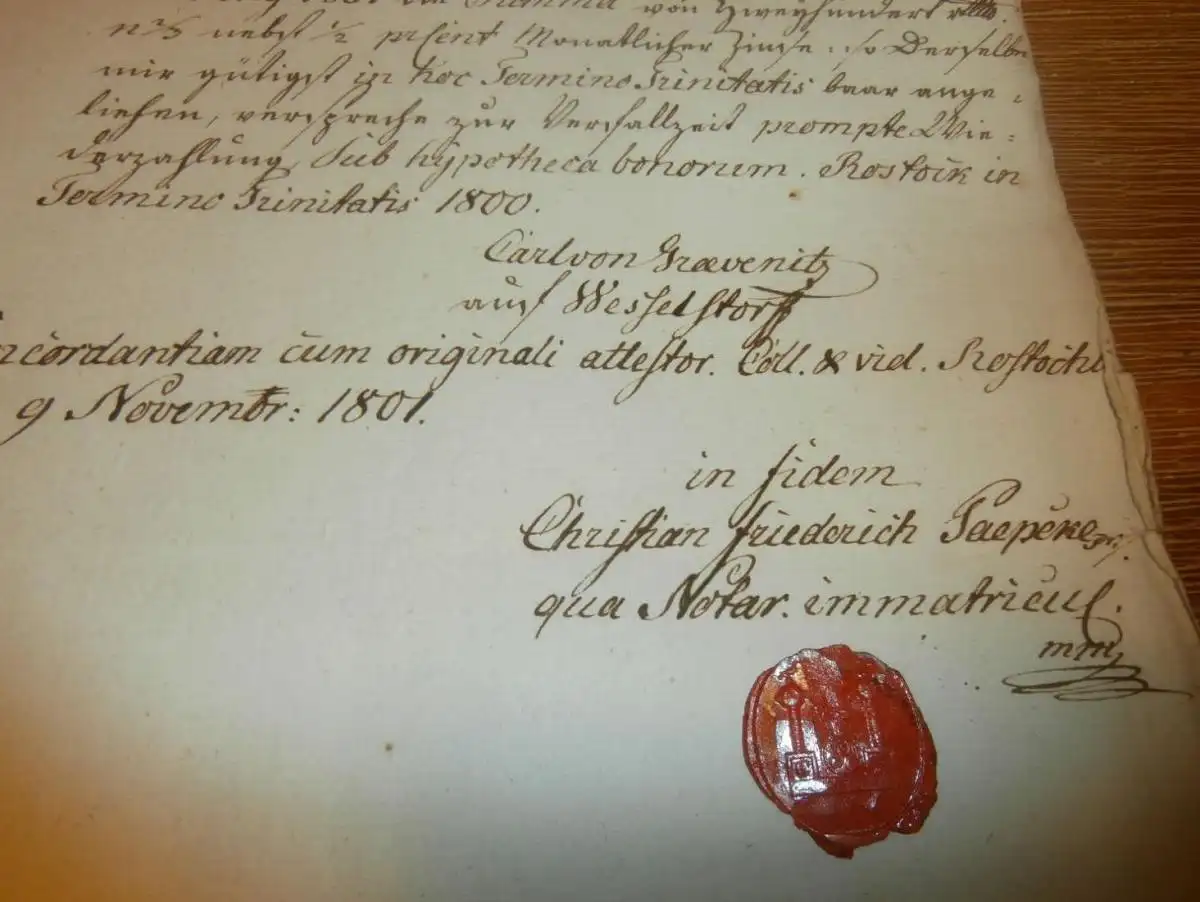 von Zweyhundert rthlr.
nebst 1/2 pCent Monatlicher Zinse, so Derselbe
mir gütigst in hoc Termino Trinitatis baar ange-
liehen, verspreche zur Verfallzeit prompte Wie=
derzahlung, sub hypotheca bonorum. Rostock in
Termino Trinitatis 1800.
Carl von Graevenitz
auf Wesselstorff
cordantiam cum originali attestor. Coll. & vid. Rostochi
9 Novembr: 1801.
in fidem
Christian Friederich Taepcke
qua Notar. immatricul.
mp